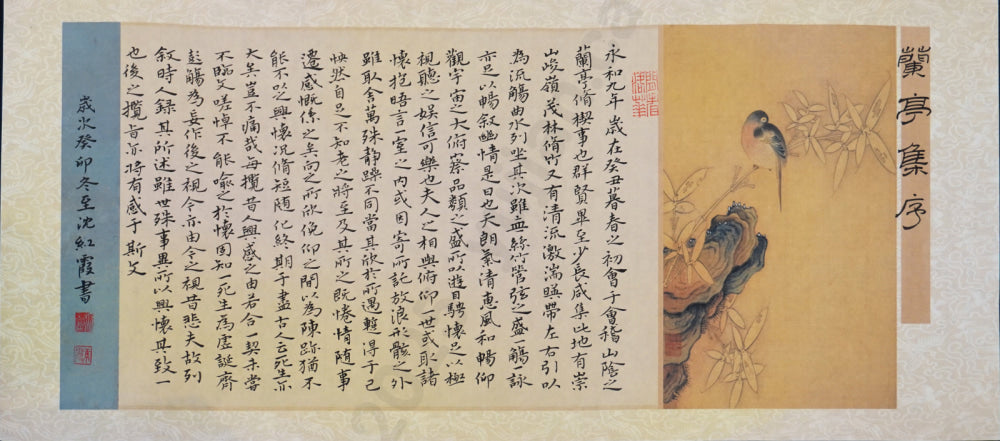 蘭亭集序
永和九年歲在癸丑暮春之初會于會稽山陰之
蘭亭脩禊事也群賢畢至少長咸集此地有崇
山峻嶺茂林脩竹又有清流激湍暎帶左右引以
為流觴曲水列坐其次雖無絲竹管弦之盛一觴一詠
亦足以暢叙幽情是日也天朗氣清惠風和暢仰
觀宇宙之大俯察品類之盛所以遊目騁懷足以極
視聽之娛信可樂也夫人之相與俯仰一世或取諸
懷抱晤言一室之內或因寄所託放浪形骸之外
雖取舍萬殊靜躁不同當其欣於所遇暫得于己
怏然自足不知老之將至及其所之既惓情隨事
遷感慨係之矣向之所欣俛仰之閒以為陳跡猶不
能不以之興懷況脩短隨化終期于盡古人云死生亦
大矣豈不痛哉每攬昔人興感之由若合一契未嘗
不臨文嗟悼不能喻之於懷固知一死生為虛誕齊
彭觴為妄作後之視今亦由今之視昔悲夫故列
敘時人錄其所述雖世殊事異所以興懷其致一
也後之攬者亦將有感于斯文
歲次癸卯冬至沈紅霞書